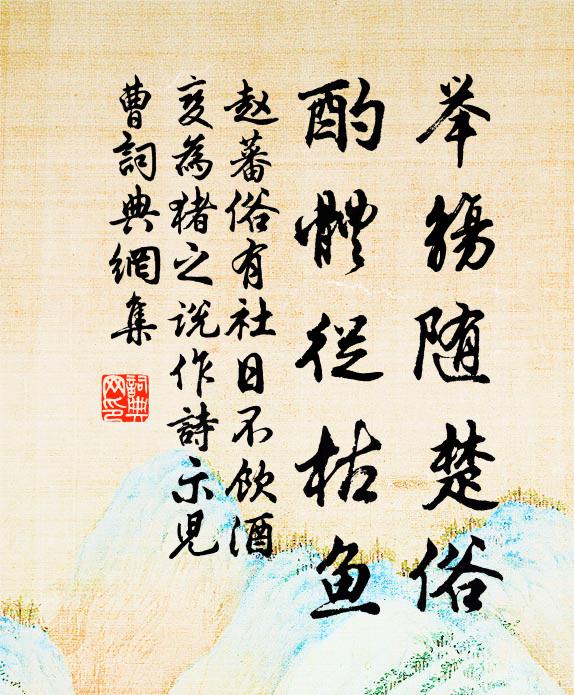 举觞随楚俗
酌醴从枯鱼
赵蕃俗有社日不饮酒
变为猪之说作诗示儿
曹词典网集
词典网印